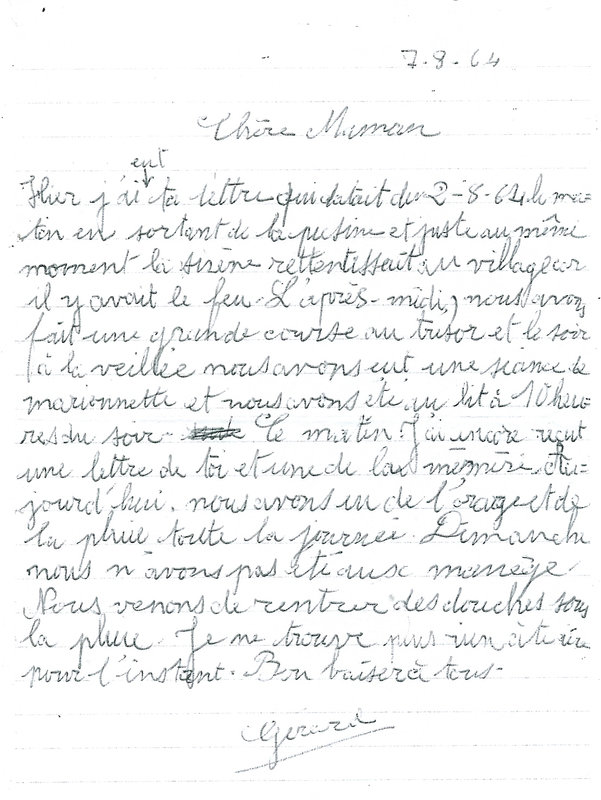 7-8-64
Chère Maman
eut
Hier j'ai ta lettre qui datait du 2-8-64 le ma-
tin en sortant de la pisine et juste au même
moment la sirène rettentissait au village car
il y avait le feu. L'après-midi, nous avons
fait une grande course au trésor et le soir
à la veillée nous avons eut une séance de
marionnette et nous avons été au lit à 10 heu-
res du soir. Ce matin J'ai encore reçut
une lettre de toi et une de la mémère. Au-
jourd'hui, nous avons eu de l'orage et de
la pluie toute la journée. Dimanche
nous n'avons pas été aux manège.
Nous venons de rentrer des douches sous
la pluie. Je ne trouve plus rien à te dire
pour l'instant. Bon baiser à tous.
Gérard